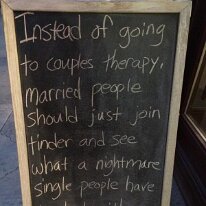 Instead of going
to couples therapy,
married people
should just join
tinder and see
what a nightmare
single people have